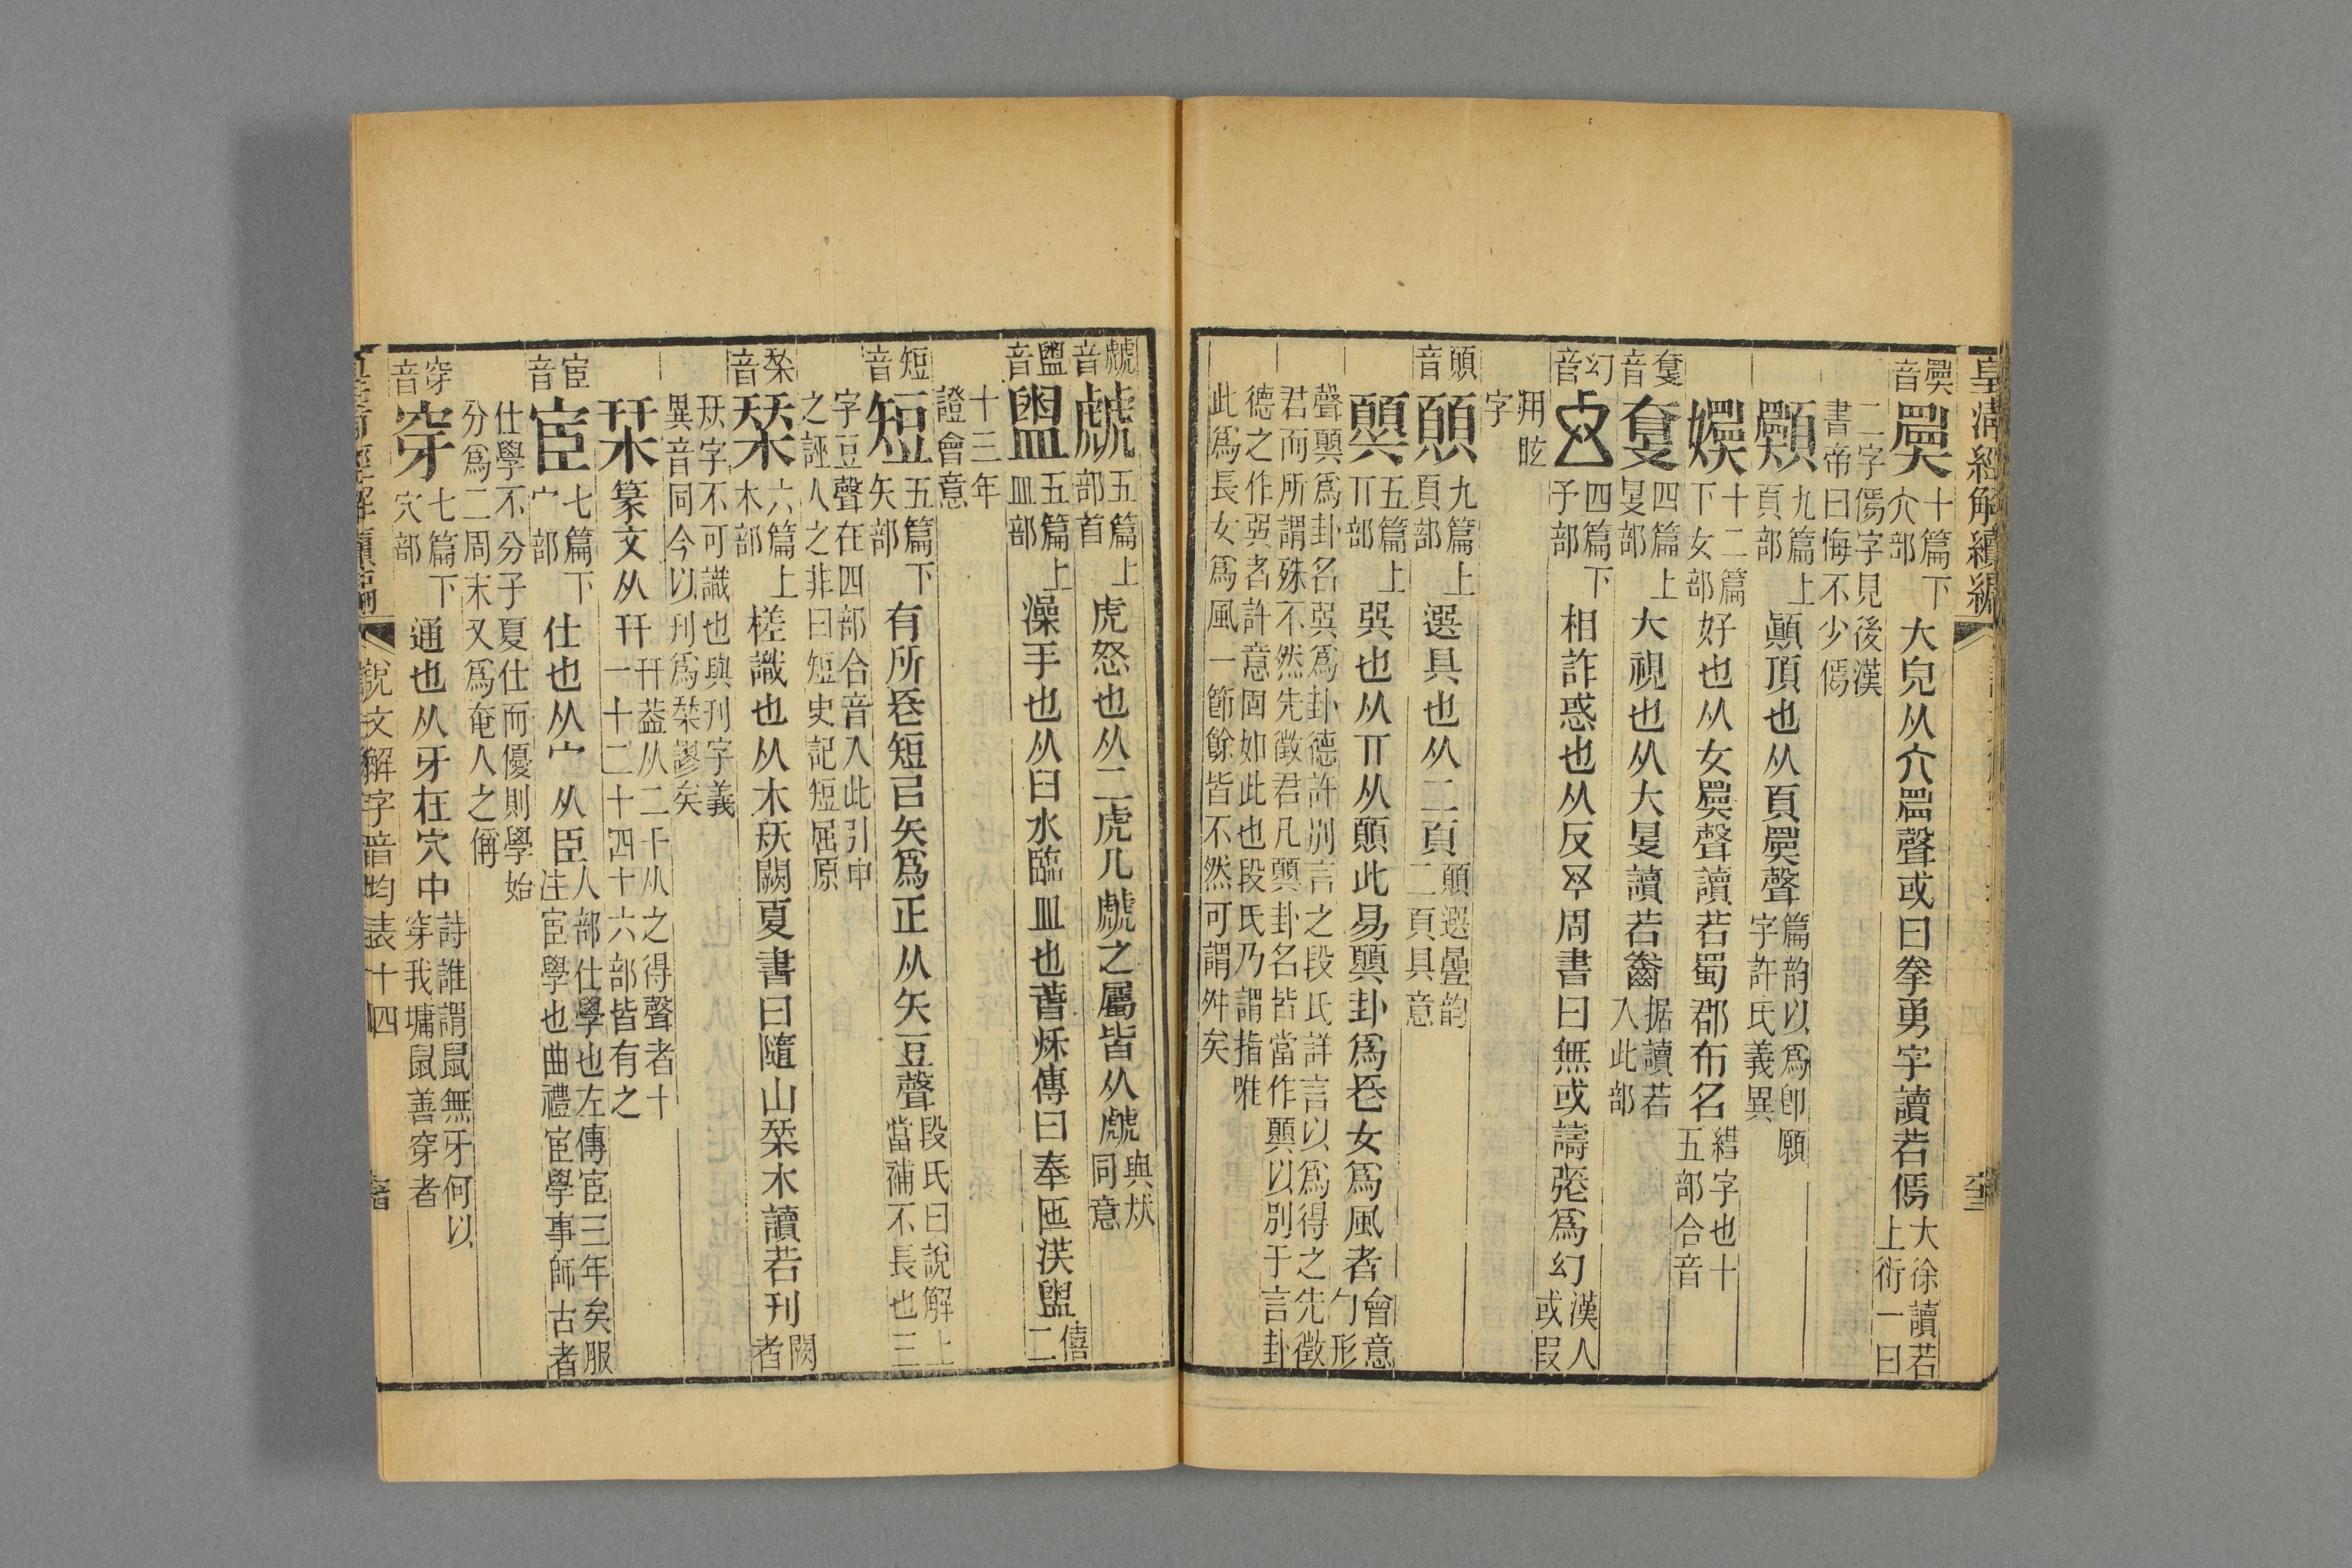 皇清經解續編
音
十篇下
大部
大皃从大聲或曰拳勇字讀若傿
大徐讀若
上衍一曰
二字傿字見後漢
書帝曰悔不少傿
顠
九篇上
頁部
顚頂也从頁聲
篇韵以爲卽願
字許氏義異
嬽
十二篇
下女部
好也从女聲讀若蜀郡布名
緒字也十
五部合音
音
四篇上
部
大視也从大讀若
据讀若
入此部
幻音
四篇下
予部
相詐惑也从反予周書曰無或譸張爲幻
漢人
或叚
用眩
字
音
九篇上
頁部
選具也从二頁
選曡韵
二頁具意
五篇上
丌部
巽也从丌从此易卦爲長女爲風者
會意
勹形
聲爲卦名巽爲卦德許別言之段氏詳言以爲得之先徵
君而所謂殊不然先徵君凡卦名皆當作以別于言卦
德之作巽者許意固如此也段氏乃謂指唯
此爲長女爲風一節餘皆不然可謂舛矣
虤音
虤
五篇上
部首
虎怒也从二虎凡虤之屬皆从虤
與㹜
同意
盥音
盥
五篇上
皿部
澡手也从臼水臨皿也春秋傳曰奉匜沃盥
僖二
十三年
證會意
短音
短
五篇下
矢部
有所長短㠯矢爲正从矢豆聲
段氏曰說解上
當補不長也三
字豆聲在四部合音入此引申
之誣人之非曰短史記短屈原
栞音
栞
六篇上
木部
槎識也从木㓞闕夏書曰隨山栞木讀若刊
闕
者
㓞字不可識也與刊字義
異音同今以刊爲栞謬矣
栞
篆文从幵
幵葢从二干从之得聲者十
一十二十四十六部皆有之
宦音
宦
七篇下
宀部
仕也从宀从臣
人部仕學也左傳宦三年矣服
注宦學也曲禮宦學事師古者
仕學不分子夏仕而優則學始
分爲二周末又爲奄人之偁
穿音
穿
七篇下
穴部
通也从牙在穴中
詩誰謂鼠無牙何以
穿我墉鼠善穿者
說文解字音均表十四